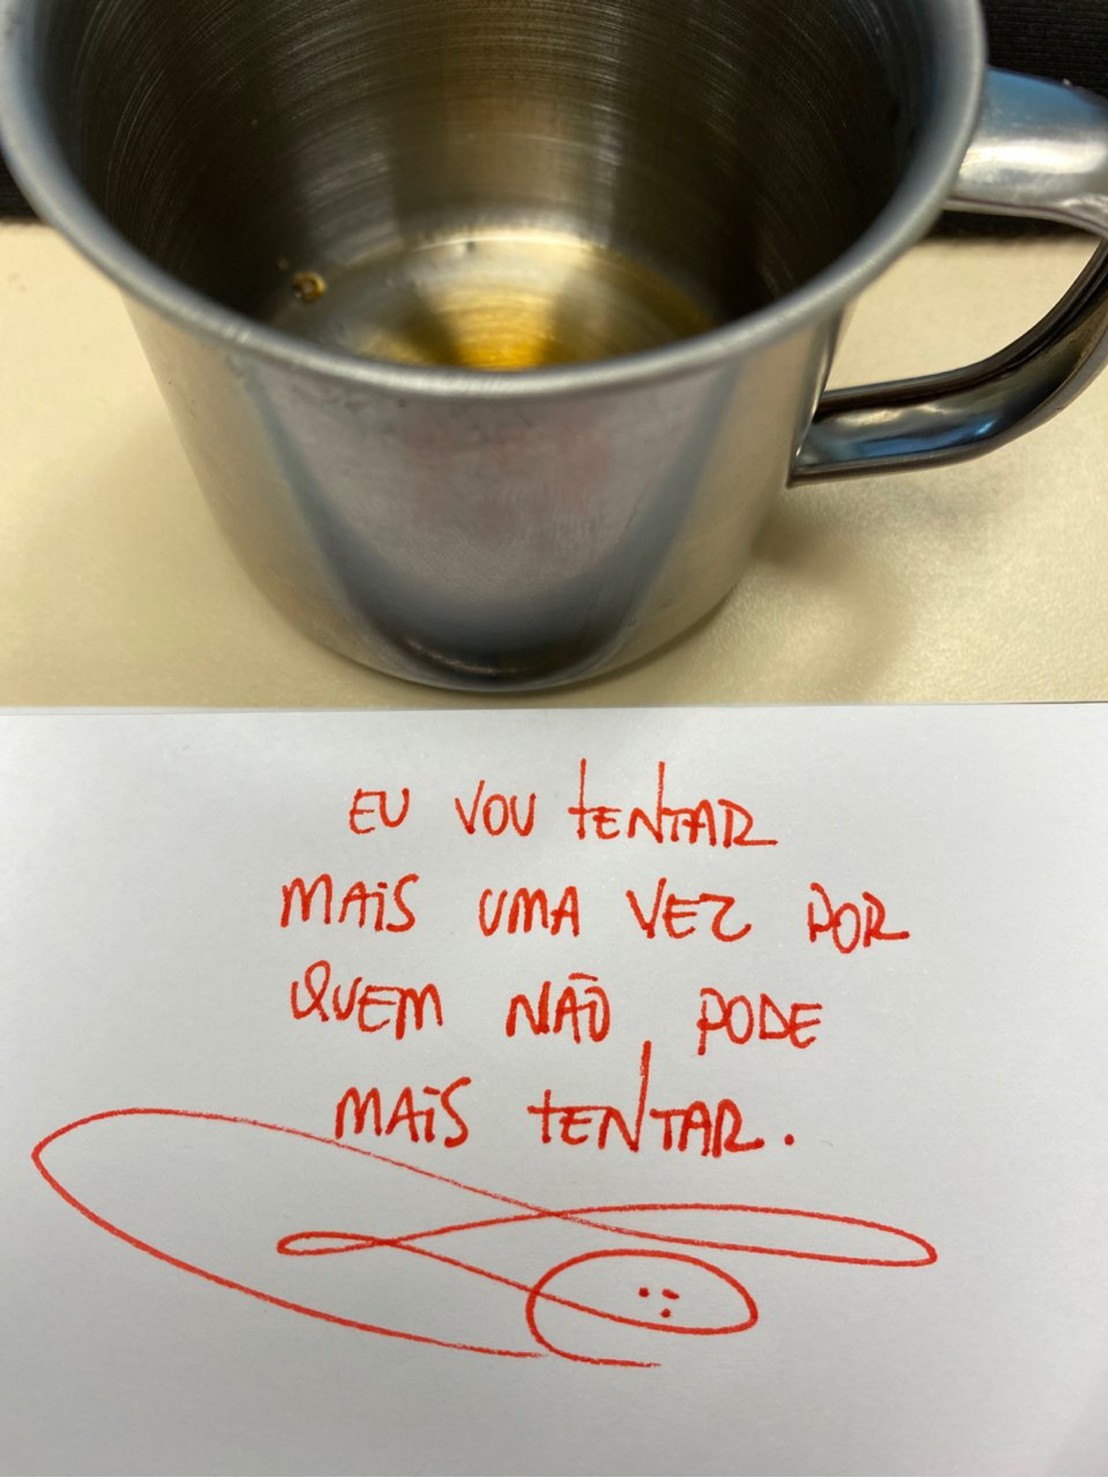 EU VOU tENTAR
MAiS UMA VEZ POR
QUEM NÃO PODE
MAiS tENTAR.